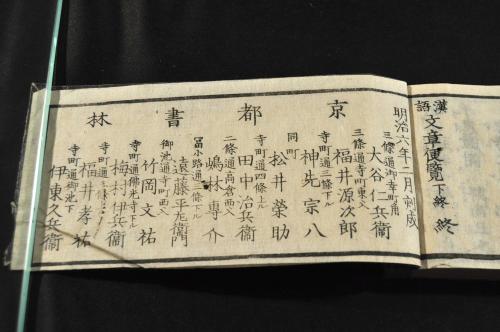 漢語
文章便覧 下終 終
明治六年二月刻成
京都書林
三條通御幸町角
大谷仁兵衛
福井源次郎
神先宗八
同町
松井榮助
寺町通四條上ル
田中治兵衛
二條通高倉西入
嶋林專介
冨小路通三條下ル
遠藤平左衛門
御池通寺町西入
竹岡文祐
寺町通佛光寺下ル
梅村伊兵衛
福井孝祐
寺町通御池下
伊東久兵衛